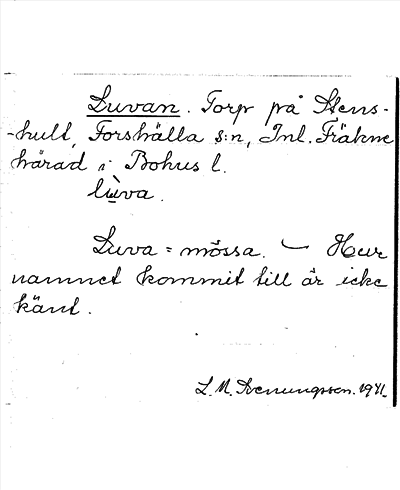 Luvan. Torp på Stens-
-hult, Forshälla s:n, Inl. Fräkne
härad i Bohus l.
lùva.
Luva = mössa. — Hur
namnet kommit till är icke
känt.
L. M. Svenungsson. 1941.